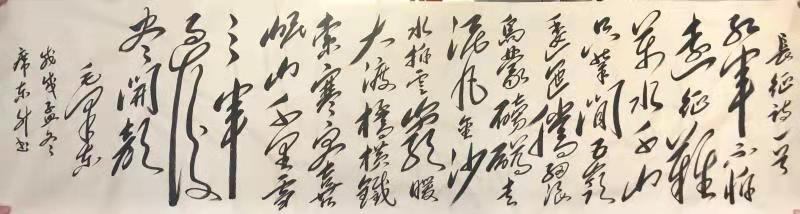 長征詩一首
红軍不怕
遠征難
萬水千山
只等闲五嶺
逶迤騰细浪
烏蒙磅礴走
泥丸金沙
水拍雲崖暖
大渡橋横鐵
索寒更喜
岷山千里雪
三軍
過後
尽開顏
毛澤東
戊戌孟冬
席东升书